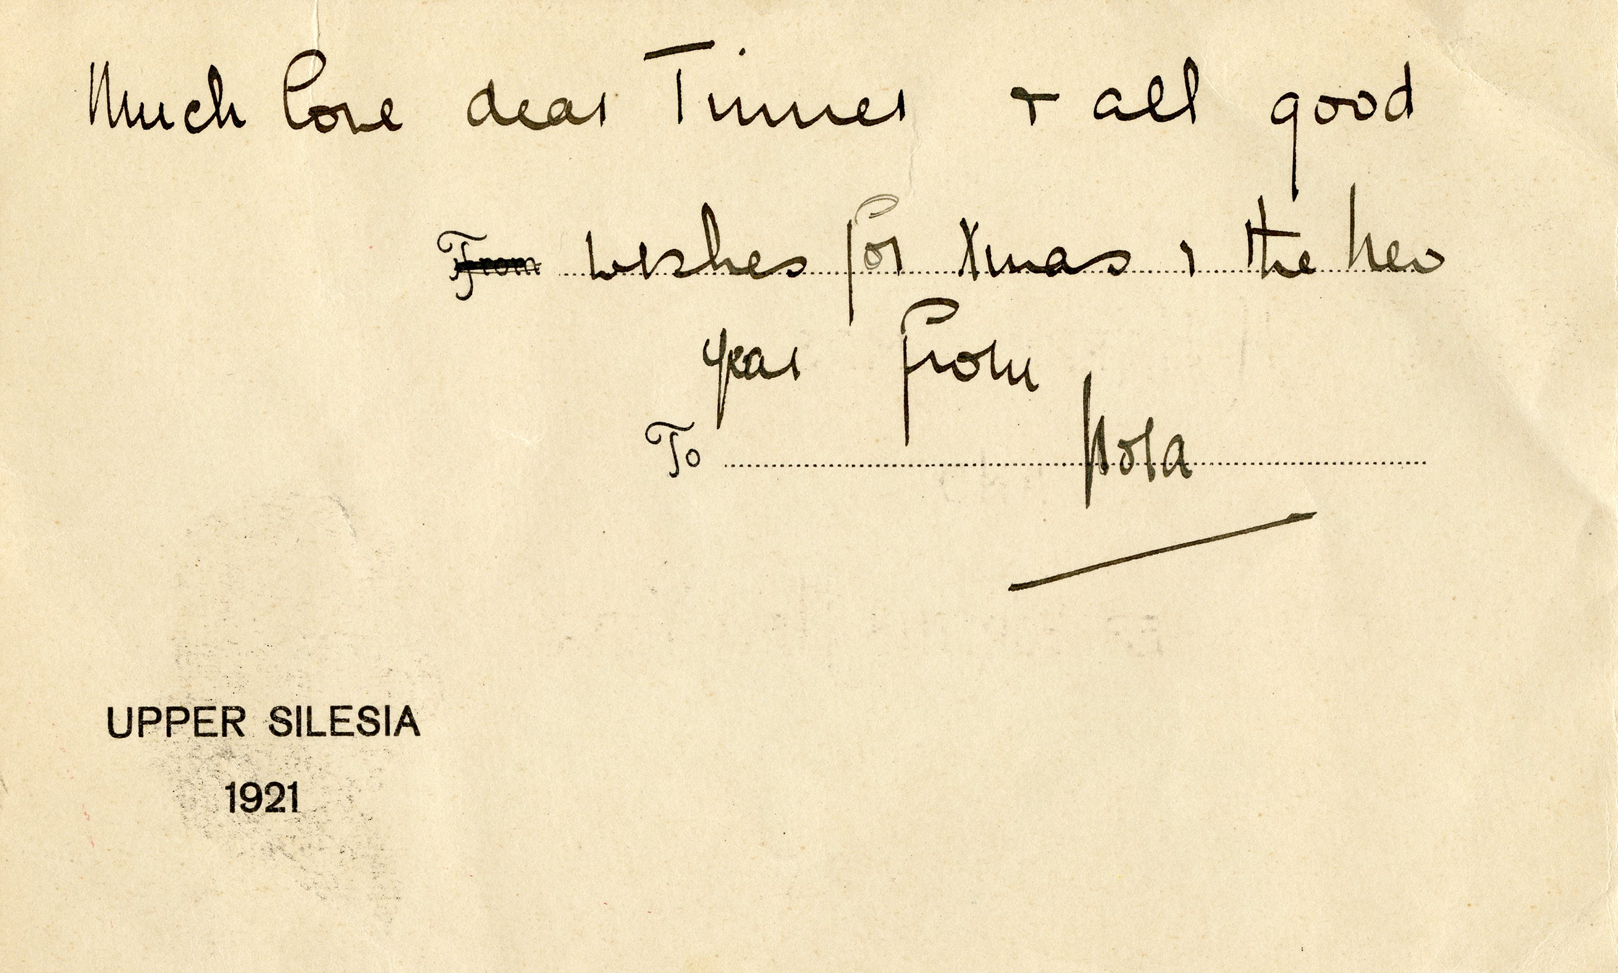 Much love dear Tinner & all good
From wishes for Xmas & the New
year from
To Nola
UPPER SILESIA
1921